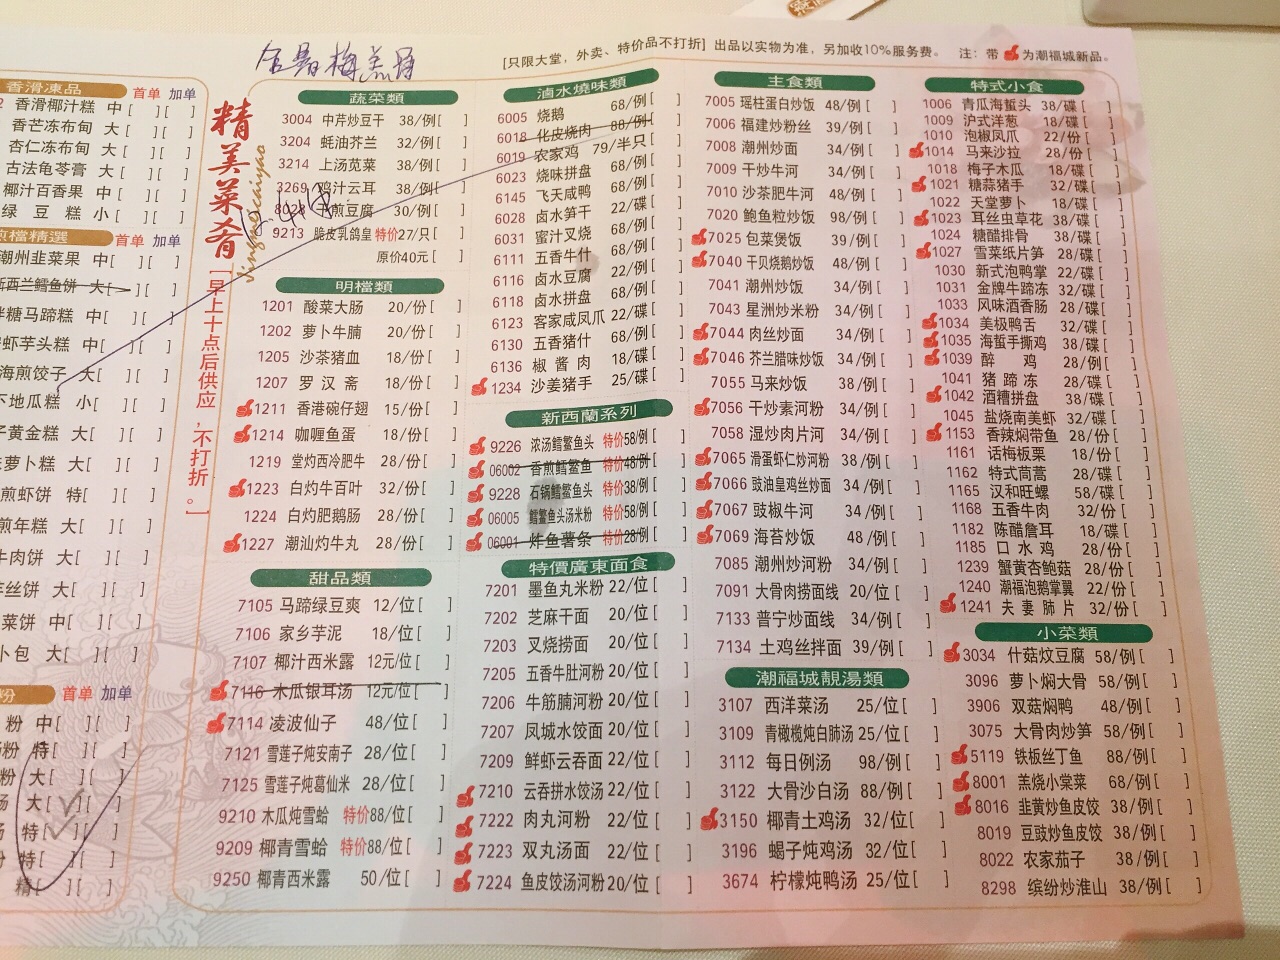 [只限大堂，外卖、特价品不打折] 出品以实物为准，另加收10%服务费。 注：带 为潮福城新品。
香滑凍品 首单 加单
香滑椰汁糕 中[ ][ ]
香芒冻布甸 大[ ][ ]
杏仁冻布甸 大[ ][ ]
古法龟苓膏 大[ ][ ]
椰汁百香果 中[ ][ ]
绿豆糕 小[ ][ ]
煎檔精選 首单 加单
潮州韭菜果 中[ ][ ]
新西兰鳕鱼饼 大[ ][ ]
糖马蹄糕 中[ ][ ]
虾芋头糕 中[ ][ ]
海煎饺子 大[ ][ ]
地瓜糕 小[ ][ ]
黄金糕 大[ ][ ]
萝卜糕 大[ ][ ]
煎虾饼 特[ ][ ]
煎年糕 大[ ][ ]
牛肉饼 大[ ][ ]
丝饼 大[ ][ ]
菜饼 中[ ][ ]
卜包 大[ ][ ]
粉 首单 加单
粉 中[ ][ ]
粉 特[ ][ ]
粉 大[ ][ ]
汤 大[ ][ ]
汤 特[ ][ ]
粉 特[ ][ ]
精[ ][ ]
精美菜肴
jingmeicaiyao
[早上十点后供应，不打折。]
蔬菜類
3004 中芹炒豆干 38/例[ ]
3204 蚝油芥兰 32/例[ ]
3214 上汤苋菜 38/例[ ]
3269 鸡汁云耳 38/例[ ]
煎豆腐 30/例[ ]
9213 脆皮乳鸽皇 特价27/只[ ]
原价40元[ ]
明檔類
1201 酸菜大肠 20/份[ ]
1202 萝卜牛腩 20/份[ ]
1205 沙茶猪血 18/份[ ]
1207 罗汉斋 18/份[ ]
1211 香港碗仔翅 15/份[ ]
1214 咖喱鱼蛋 18/份[ ]
1219 堂灼西冷肥牛 28/份[ ]
1223 白灼牛百叶 32/份[ ]
1224 白灼肥鹅肠 28/份[ ]
1227 潮汕灼牛丸 28/份[ ]
甜品類
7105 马蹄绿豆爽 12/位[ ]
7106 家乡芋泥 18/位[ ]
7107 椰汁西米露 12元/位[ ]
7116 木瓜银耳汤 12元/位[ ]
7114 凌波仙子 48/位[ ]
7121 雪莲子炖安南子 28/位[ ]
7125 雪莲子炖葛仙米 28/位[ ]
9210 木瓜炖雪蛤 特价88/位[ ]
9209 椰青雪蛤 特价88/位[ ]
9250 椰青西米露 50/位[ ]
滷水燒味類
6005 烧鹅 68/例[ ]
6018 化皮烧肉 88/例[ ]
6019 农家鸡 79/半只[ ]
6023 烧味拼盘 68/例[ ]
6145 飞天咸鸭 68/例[ ]
6028 卤水笋干 22/碟[ ]
6031 蜜汁叉烧 68/例[ ]
6111 五香牛什 68/例[ ]
6116 卤水豆腐 22/例[ ]
6118 卤水拼盘 68/例[ ]
6123 客家咸凤爪 22/碟[ ]
6130 五香猪什 68/例[ ]
6136 椒酱肉 18/碟[ ]
1234 沙姜猪手 25/碟[ ]
新西蘭系列
9226 浓汤鳕鳘鱼头 特价58/例[ ]
06002 香煎鳕鳘鱼 特价48/例[ ]
9228 石锅鳕鳘鱼头 特价38/例[ ]
06005 鳕鳘鱼头汤米粉 特价38/例[ ]
06001 炸鱼薯条 特价28/例[ ]
特價廣東面食
7201 墨鱼丸米粉 22/位[ ]
7202 芝麻干面 20/位[ ]
7203 叉烧捞面 20/位[ ]
7205 五香牛肚河粉 20/位[ ]
7206 牛筋腩河粉 20/位[ ]
7207 凤城水饺面 20/位[ ]
7209 鲜虾云吞面 20/位[ ]
7210 云吞拼水饺汤 22/位[ ]
7222 肉丸河粉 22/位[ ]
7223 双丸汤面 22/位[ ]
7224 鱼皮饺汤河粉 20/位[ ]
主食類
7005 瑶柱蛋白炒饭 48/例[ ]
7006 福建炒粉丝 39/例[ ]
7008 潮州炒面 34/例[ ]
7009 干炒牛河 34/例[ ]
7010 沙茶肥牛河 48/例[ ]
7020 鲍鱼粒炒饭 98/例[ ]
7025 包菜煲饭 39/例[ ]
7040 干贝烧鹅炒饭 48/例[ ]
7041 潮州炒饭 34/例[ ]
7043 星洲炒米粉 34/例[ ]
7044 肉丝炒面 34/例[ ]
7046 芥兰腊味炒饭 34/例[ ]
7055 马来炒饭 38/例[ ]
7056 干炒素河粉 34/例[ ]
7058 湿炒肉片河 34/例[ ]
7065 滑蛋虾仁炒河粉 38/例[ ]
7066 豉油皇鸡丝炒面 34/例[ ]
7067 豉椒牛河 34/例[ ]
7069 海苔炒饭 48/例[ ]
7085 潮州炒河粉 38/例[ ]
7091 大骨肉捞面线 20/位[ ]
7133 普宁炒面线 34/例[ ]
7134 土鸡丝拌面 39/例[ ]
潮福城靚湯類
3107 西洋菜汤 25/位[ ]
3109 青橄榄炖白肺汤 25/位[ ]
3112 每日例汤 98/例[ ]
3122 大骨沙白汤 88/例[ ]
3150 椰青土鸡汤 32/位[ ]
3196 蝎子炖鸡汤 32/位[ ]
3674 柠檬炖鸭汤 25/位[ ]
特式小食
1006 青瓜海蜇头 38/碟[ ]
1009 沪式洋葱 18/碟[ ]
1010 泡椒凤爪 22/份[ ]
1014 马来沙拉 28/份[ ]
1018 梅子木瓜 18/碟[ ]
1021 糖蒜猪手 32/碟[ ]
1022 天堂萝卜 18/碟[ ]
1023 耳丝虫草花 38/碟[ ]
1024 糖醋排骨 38/碟[ ]
1027 雪菜纸片笋 28/碟[ ]
1030 新式泡鸭掌 22/碟[ ]
1031 金牌牛蹄冻 32/碟[ ]
1033 风味酒香肠 28/碟[ ]
1034 美极鸭舌 32/碟[ ]
1035 海蜇手撕鸡 38/碟[ ]
1039 醉鸡 28/例[ ]
1041 猪蹄冻 28/碟[ ]
1042 酒糟拼盘 38/碟[ ]
1045 盐烧南美虾 32/碟[ ]
1153 香辣焖带鱼 28/份[ ]
1161 话梅板栗 18/份[ ]
1162 特式茼蒿 28/碟[ ]
1165 汉和旺螺 58/碟[ ]
1168 五香牛肉 32/份[ ]
1182 陈醋詹耳 18/碟[ ]
1185 口水鸡 28/份[ ]
1239 蟹黄杏鲍菇 28/份[ ]
1240 潮福泡鹅掌翼 22/份[ ]
1241 夫妻肺片 32/份[ ]
小菜類
3034 什菇炆豆腐 58/例[ ]
3096 萝卜焖大骨 58/例[ ]
3906 双菇焖鸭 48/例[ ]
3075 大骨肉炒笋 58/例[ ]
5119 铁板丝丁鱼 88/例[ ]
8001 羔烧小棠菜 68/例[ ]
8016 韭黄炒鱼皮饺 38/例[ ]
8019 豆豉炒鱼皮饺 38/例[ ]
8022 农家茄子 38/例[ ]
8298 缤纷炒淮山 38/例[ ]